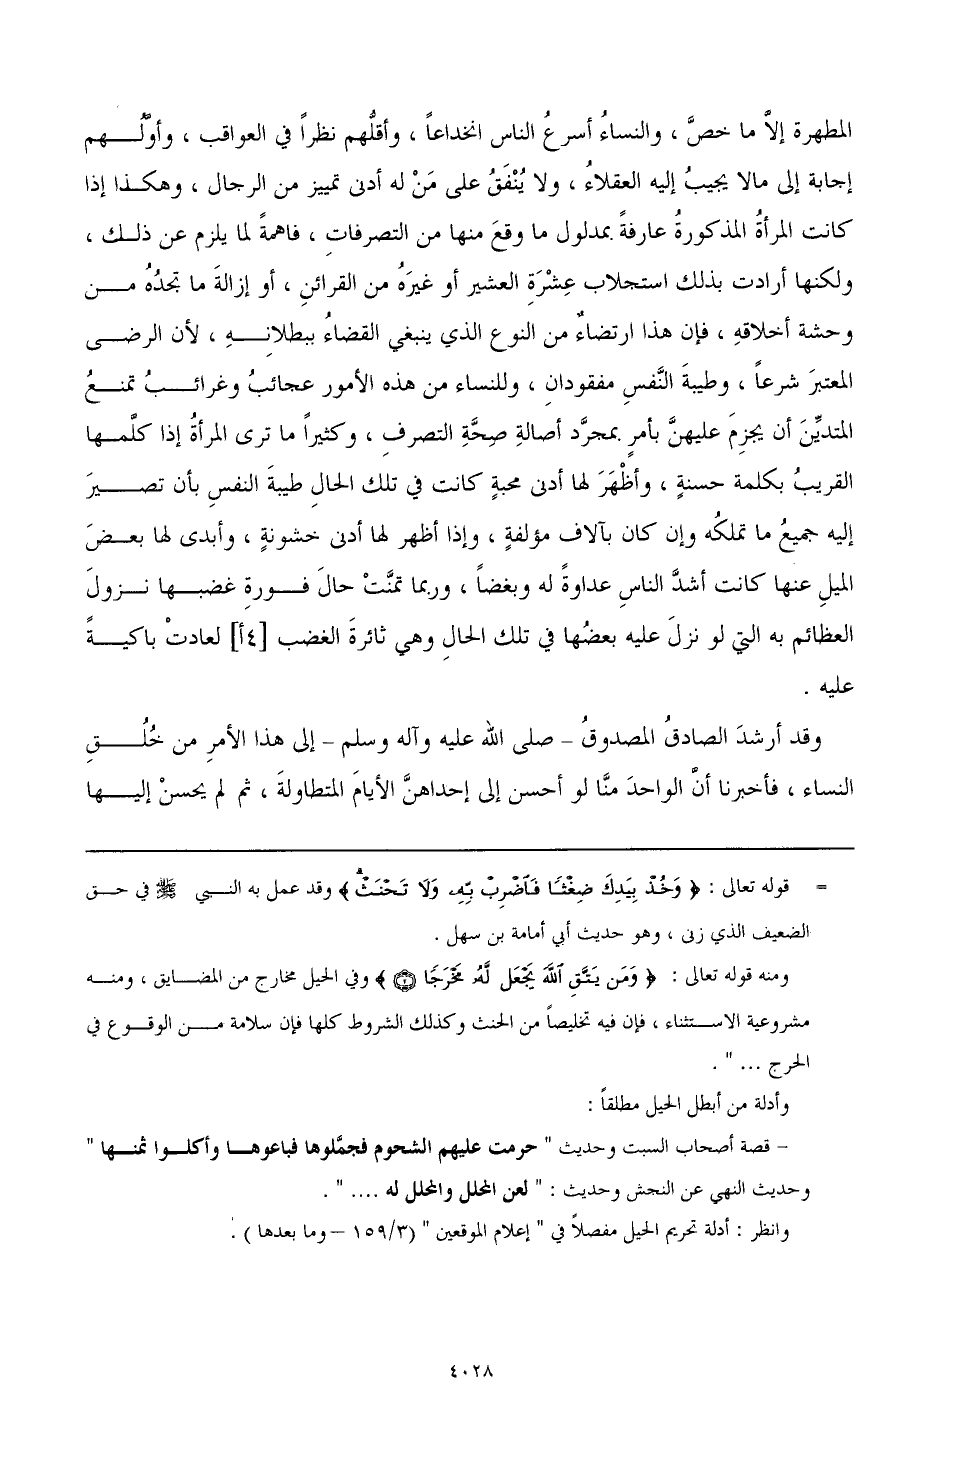 المطهرة إلاَّ ما خصَّ ، والنساءُ أسرعُ الناس انخداعاً ، وأقلُّهم نظراً في العواقب ، وأوَّلُهم
إجابة إلى مالا يجيبُ إليه العقلاءُ ، ولا يُنْفَقُ على مَنْ له أدنى تمييز من الرجال ، وهكذا إذا
كانت المرأةُ المذكورةُ عارفةً بمدلول ما وقعَ منها من التصرفاتِ ، فاهمةً لما يلزم عن ذلك ،
ولكنها أرادت بذلك استجلاب عِشْرَةِ العشير أو غيرَهُ من القرائنِ ، أو إزالةَ ما تجدُهُ من
وحشة أخلاقهِ ، فإن هذا ارتضاءٌ من النوع الذي ينبغي القضاءُ ببطلانهِ ، لأن الرضى
المعتبرَ شرعاً ، وطيبةَ النَّفسِ مفقودانِ ، وللنساء من هذه الأمور عجائبُ وغرائبُ تمنعُ
المتديِّنَ أن يجزمَ عليهنَّ بأمرٍ بمجرَّد أصالةِ صِحَّةِ التصرفِ ، وكثيراً ما ترى المرأةُ إذا كلَّمها
القريبُ بكلمة حسنةٍ ، وأظْهَرَ لها أدنى محبةٍ كانت في تلك الحالِ طيبةَ النفسِ بأن تصيرَ
إليه جميعُ ما تملكُه وإن كان بآلاف مؤلفةٍ ، وإذا أظهر لها أدنى خشونةٍ ، وأبدى لها بعضَ
الميلِ عنها كانت أشدَّ الناسِ عداوةً له وبغضاً ، وربما تمنَّتْ حالَ فورةِ غضبها نزولَ
العظائم به التي لو نزلَ عليه بعضُها في تلك الحالِ وهي ثائرةَ الغضب [٤أ] لعادتْ باكيةً
عليه .
وقد أرشدَ الصادقُ المصدوقُ – صلى الله عليه وآله وسلم – إلى هذا الأمرِ من خُلُقِ
النساء ، فأخبرنا أنَّ الواحدَ منَّا لو أحسن إلى إحداهنَّ الأيامَ المتطاولةَ ، ثم لم يحسنْ إليها
= قوله تعالى : ﴿ وَخُذْ بِيَدِكَ ضِغْثًا فَٱضْرِب بِّهِۦ وَلَا تَحْنَثْ ﴾ وقد عمل به النبي ﷺ في حق
الضعيف الذي زنى ، وهو حديث أبي أمامة بن سهل .
ومنه قوله تعالى : ﴿ وَمَن يَتَّقِ ٱللَّهَ يَجْعَل لَّهُۥ مَخْرَجًا ۝٢ ﴾ وفي الحيل مخارج من المضايق ، ومنه
مشروعية الاستثناء ، فإن فيه تخليصاً من الحنث وكذلك الشروط كلها فإن سلامة من الوقوع في
الحرج ... " .
وأدلة من أبطل الحيل مطلقاً :
– قصة أصحاب السبت وحديث " حرمت عليهم الشحوم فجمَّلوها فباعوها وأكلوا ثمنها "
وحديث النهي عن النجش وحديث : " لعن المحلل والمحلل له .... " .
وانظر : أدلة تحريم الحيل مفصلاً في " إعلام الموقعين " (١٥٩/٣ – وما بعدها ) .
٤٠٢٨